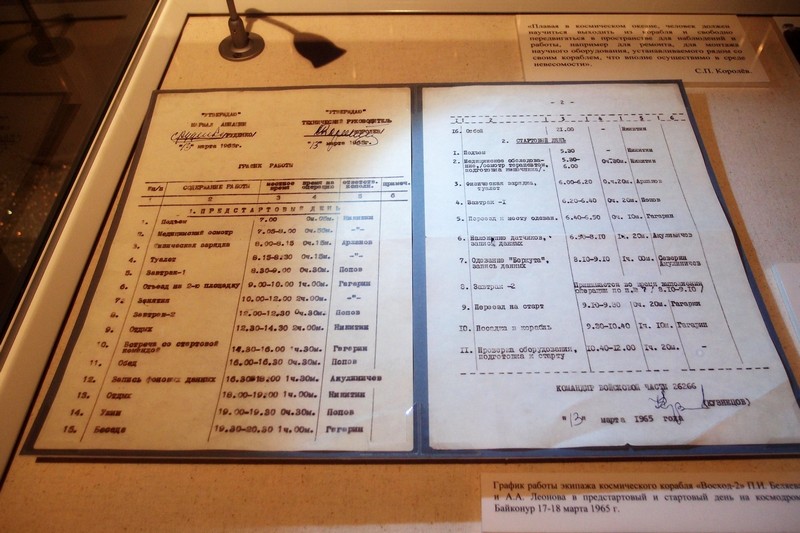 «Плавая в космическом океане, человек должен
научиться выходить из корабля и свободно
передвигаться в пространстве для наблюдений и
работы, например для ремонта, для монтажа
научного оборудования, устанавливаемого рядом со
своим кораблем, что вполне осуществимо в среде
невесомости».
С.П. Королёв.
"УТВЕРЖДАЮ"
"13" марта 1965г.
"УТВЕРЖДАЮ"
ТЕХНИЧЕСКИЙ РУКОВОДИТЕЛЬ
"13" марта 1965г.
ГРАФИК РАБОТЫ
СОДЕРЖАНИЕ РАБОТЫ местное время время на операцию ответств. исполн. примеч.
1 2 3 4 5 6
1. ПРЕДСТАРТОВЫЙ ДЕНЬ
1. Подъем 7.00 Никитин
2. Медицинский осмотр 7.05-8.00 -"-
3. Физическая зарядка 8.00-8.15 0ч.15м. Архипов
4. Туалет 8.15-8.30 0ч.15м. -
5. Завтрак-1 8.30-9.00 0ч.30м. Попов
6. Отъезд на 2-ю площадку 9.00-10.00 1ч.00м. Гагарин
7. Занятия 10.00-12.00 2ч.00м. -"-
8. Завтрак-2 12.00-12.30 0ч.30м. Попов
9. Отдых 12.30-14.30 2ч.00м. Никитин
10. Встреча со стартовой
командой 14.30-16.00 1ч.30м. Гагарин
11. Обед 16.00-16.30 0ч.30м. Попов
12. Запись фоновых данных 1ч.30м. Акулиничев
13. Отдых 18.00-19.00 1ч.00м. Никитин
14. Ужин 19.00-19.30 0ч.30м. Попов
15. Беседа 19.30-20.30 1ч.00м. Гагарин
- 2 -
16. Отбой 21.00 - Никитин
2. СТАРТОВЫЙ ДЕНЬ
1. Подъем 5.30 - Никитин
2. Медицинское обследова-
ние,/осмотр терапевтом, 5.30- 0ч.30м. Никитин
подготовка 6.00
3. Физическая зарядка, 6.00-6.20 0ч.20м. Архипов
туалет
4. Завтрак -1 6.20-6.40 0ч. 20м. Попов
5. Переезд к месту одеван. 6.40-6.50 0ч. 10м. Гагарин
6. Наложение датчиков, 6.50-8.10 1ч. 20м. Акулиничев
запись данных
7. Одевание "Беркута", 8.10-9.10 1ч. 00м. Северин
запись данных Акулиничев
8. Завтрак -2 Принимается во время выполнения
операции по п.п 7 / 8.10-9.10 /
9. Переезд на старт 9.10-9.30 0ч. 20м. Гагарин
10. Посадка в корабль 9.30-10.40 1ч. 10м. Гагарин
11. Проверка оборудования, 10.40-12.00 1ч. 20м. -
подготовка к старту
КОМАНДИР ВОЙСКОВОЙ ЧАСТИ 26266
(КУЗНЕЦОВ)
"13" марта 1965 года
График работы экипажа космического корабля «Восход-2» П.И. Беляева
и А.А. Леонова в предстартовый и стартовый день на космодроме
Байконур 17-18 марта 1965 г.